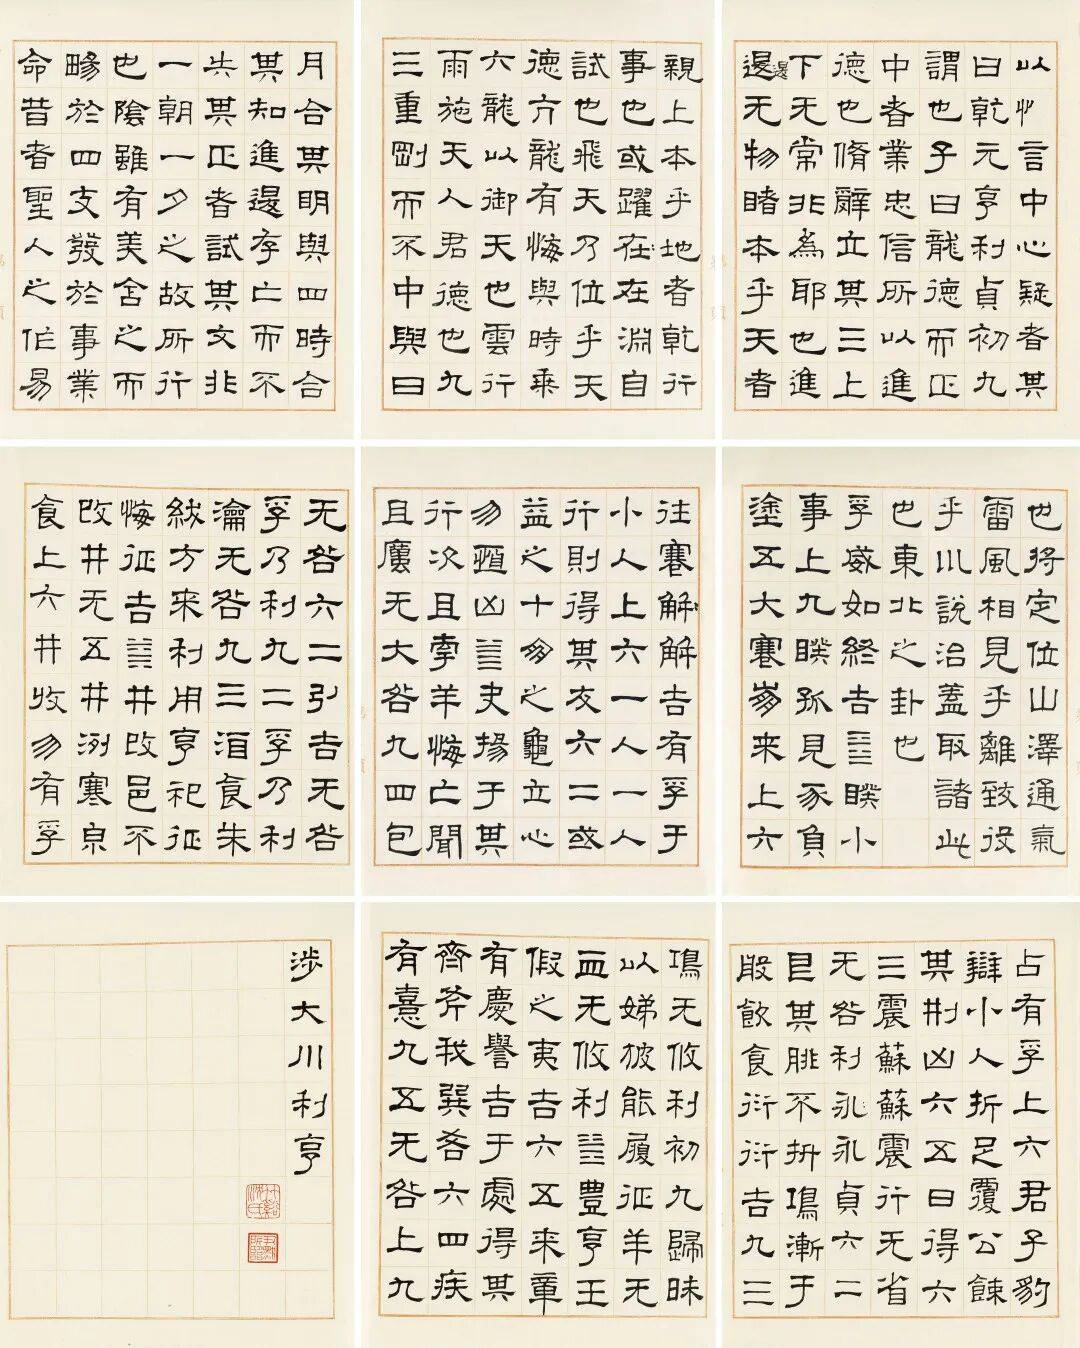 以忄言中心疑者其
曰乾元亨利貞初九
謂也子曰龍德而正
中者業忠信所以進
德也脩辭立其三上
下无常非為耶也進
退无物睹本乎天者
親上本乎地者乾行
事也或躍在在淵自
試也飛天乃位乎天
德亢龍有悔與時乘
六龍以御天也雲行
雨施天人君德也九
三重剛而不中與曰
月合其明與四時合
其知進退存亡而不
失其正者試其文非
一朝一夕之故所行
也陰雖有美含之而
暢於四支發於事業
命昔者聖人之作易
也將定位山澤通氣
雷風相見乎離致役
乎川說治蓋取諸此
也東北之卦也
孚威如終吉言睽小
事上九睽孤見豕負
塗五大蹇朋來上六
往蹇解解吉有孚于
小人上六一人一人
行則得其友六二或
益之十朋之龜立心
勿恆凶言夬揚于其
行次且牽羊悔亡聞
且无大咎九四包
无咎六二引吉无咎
孚乃利九二孚乃利
瀹无咎九三洎食朱
紱方來利用亨祀征
悔征吉言井改邑不
改井无五井冽寒泉
食上六井收勿有孚
占有孚上六君子豹
辯小人折足覆公餗
其刑凶六五曰得六
三震蘇蘇震行无省
无咎利永永貞六二
目其腓不拚鴻漸于
般飲食衍衍吉九三
鴻无攸利初九歸昧
以娣彼能履征羊无
血无攸利言豐亨王
假之夷吉六五來章
有慶譽吉于處得其
齊斧我巽吝六四疾
有憙九五无咎上九
涉大川利亨